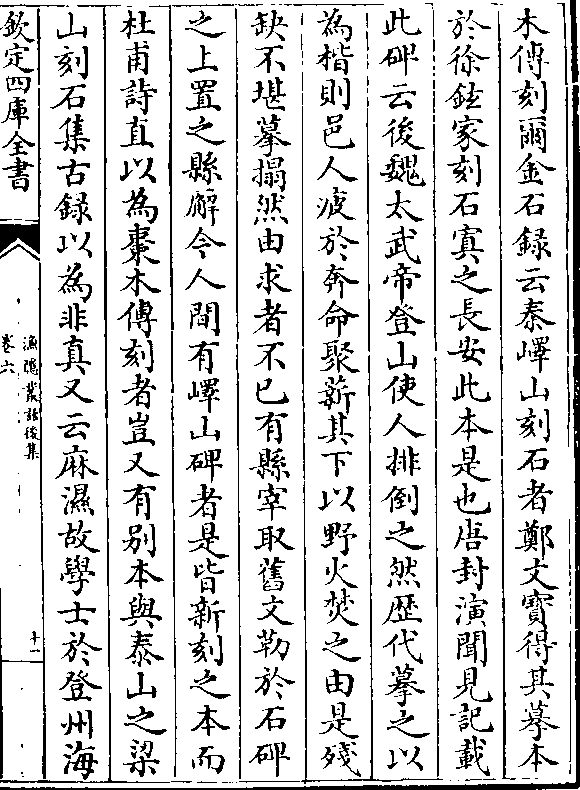 木傳刻爾金石録云秦嶧山刻石者鄭文寶得其摹本
於徐鉉家刻石寘之長安此本是也唐封演聞見記載
此碑云後魏太武帝登山使人排倒之然歴代摹之以
為楷則邑人疲於奔命聚薪其下以野火焚之由是殘
缺不堪摹搨然由求者不已有縣宰取舊文勒於石碑
之上置之縣廨今人間有嶧山碑者是皆新刻之本而
杜甫詩直以為棗木傳刻者豈又有别本與泰山之梁
山刻石集古録以為非真又云麻溫故學士於登州海
欽定四庫全書
漁隱叢話後集
卷六
十一